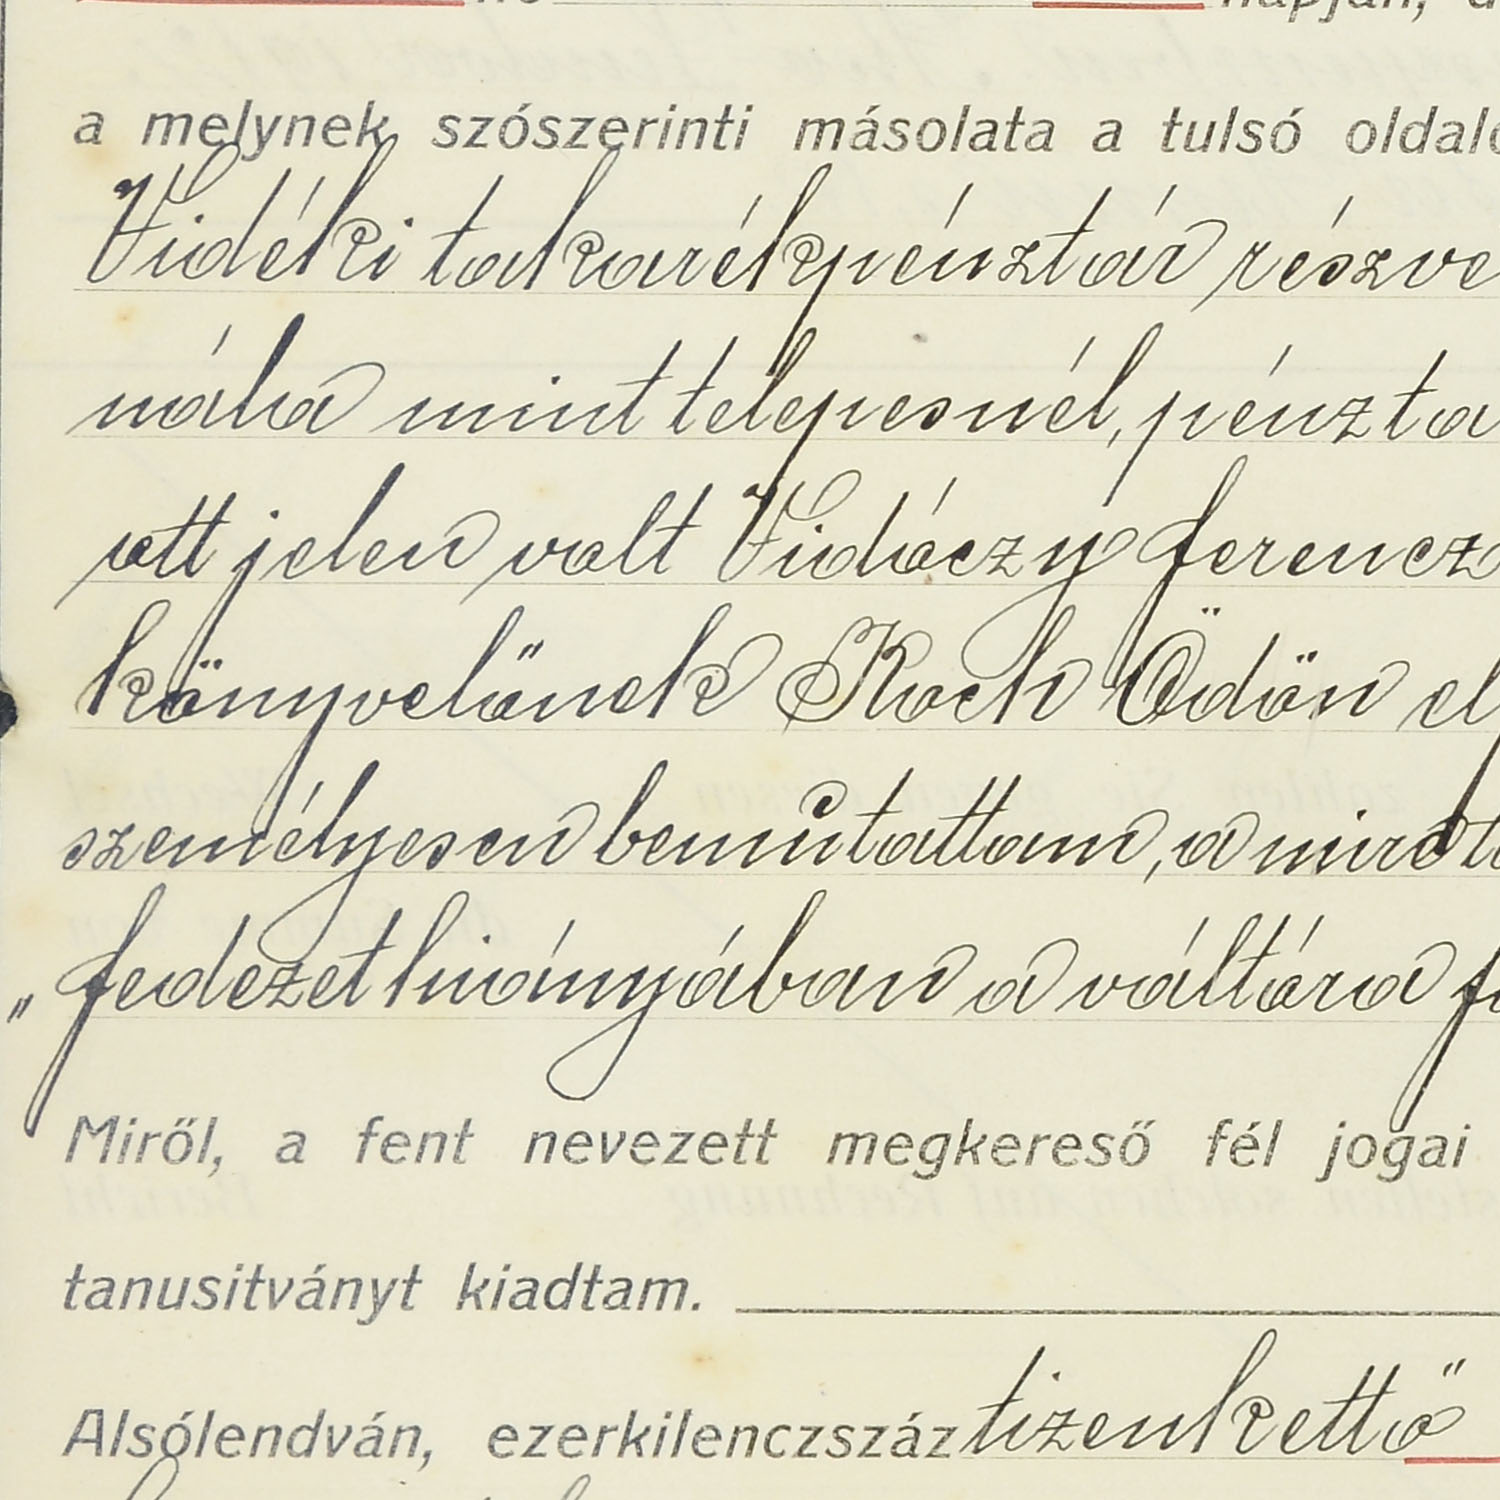 napján,
a melynek szószerinti másolata a tulsó oldalo
Vidéki takarékpénztár részve
nála mint telepesnél, pénzta
ott jelen volt Vidóczy Ferencz
könyvelőnek Koch Ödön el
személyesen bemutattam, a mire
„fedezet hiányában a váltóra f
Miről, a fent nevezett megkereső fél jogai
tanusitványt kiadtam.
Alsólendván, ezerkilenczszáztizenkettő